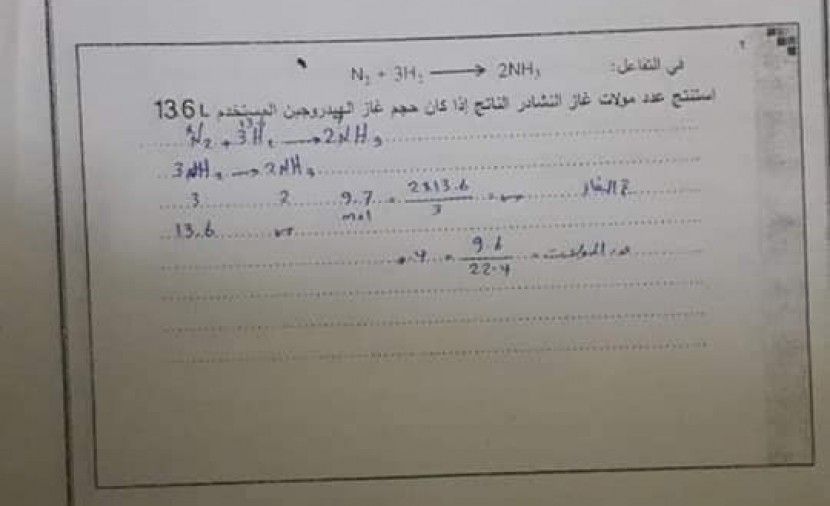 ٢
في التفاعل: N₂ + 3H₂ ⟶ 2NH₃
استنتج عدد مولات غاز النشادر الناتج إذا كان حجم غاز الهيدروجين المستخدم 13.6 L
N₂ + 3H₂ ⟶ 2NH₃
3H₂ ⟶ 2NH₃
3 2 9.7 mol = 2x13.6 / 3 = س ح الغاز
13.6 س
0.4 = 9.6 / 22.4 = عدد المولات